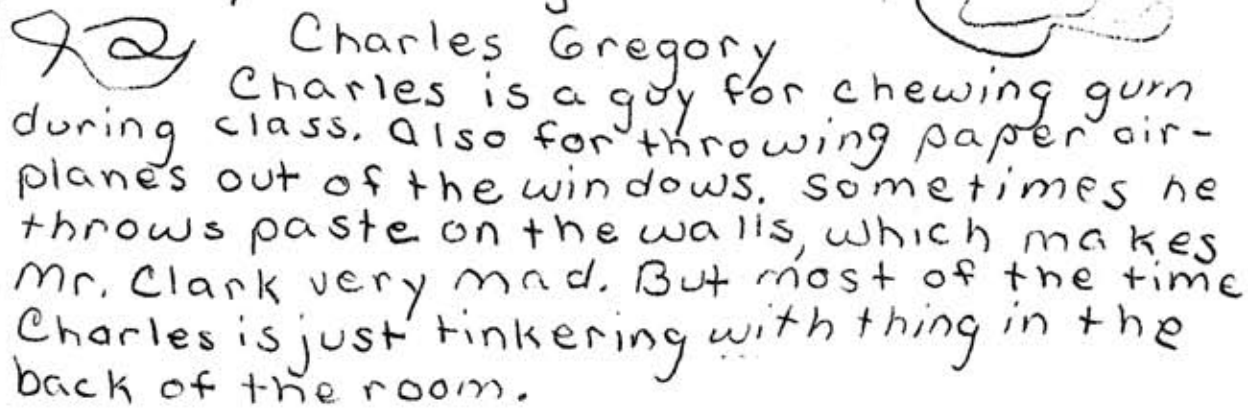 Charles Gregory
Charles is a guy for chewing gum
during class. Also for throwing paper air-
planes out of the windows. Sometimes he
throws paste on the walls, which makes
Mr. Clark very mad. But most of the time
Charles is just tinkering with thing in the
back of the room.